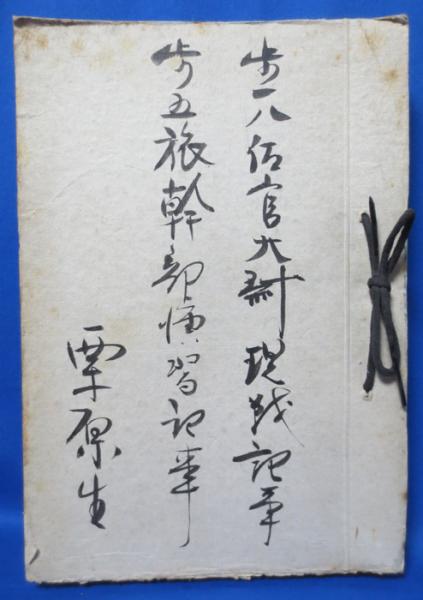 歩一八佐官大尉現戦記事
歩五旅幹部演習記事
栗原生